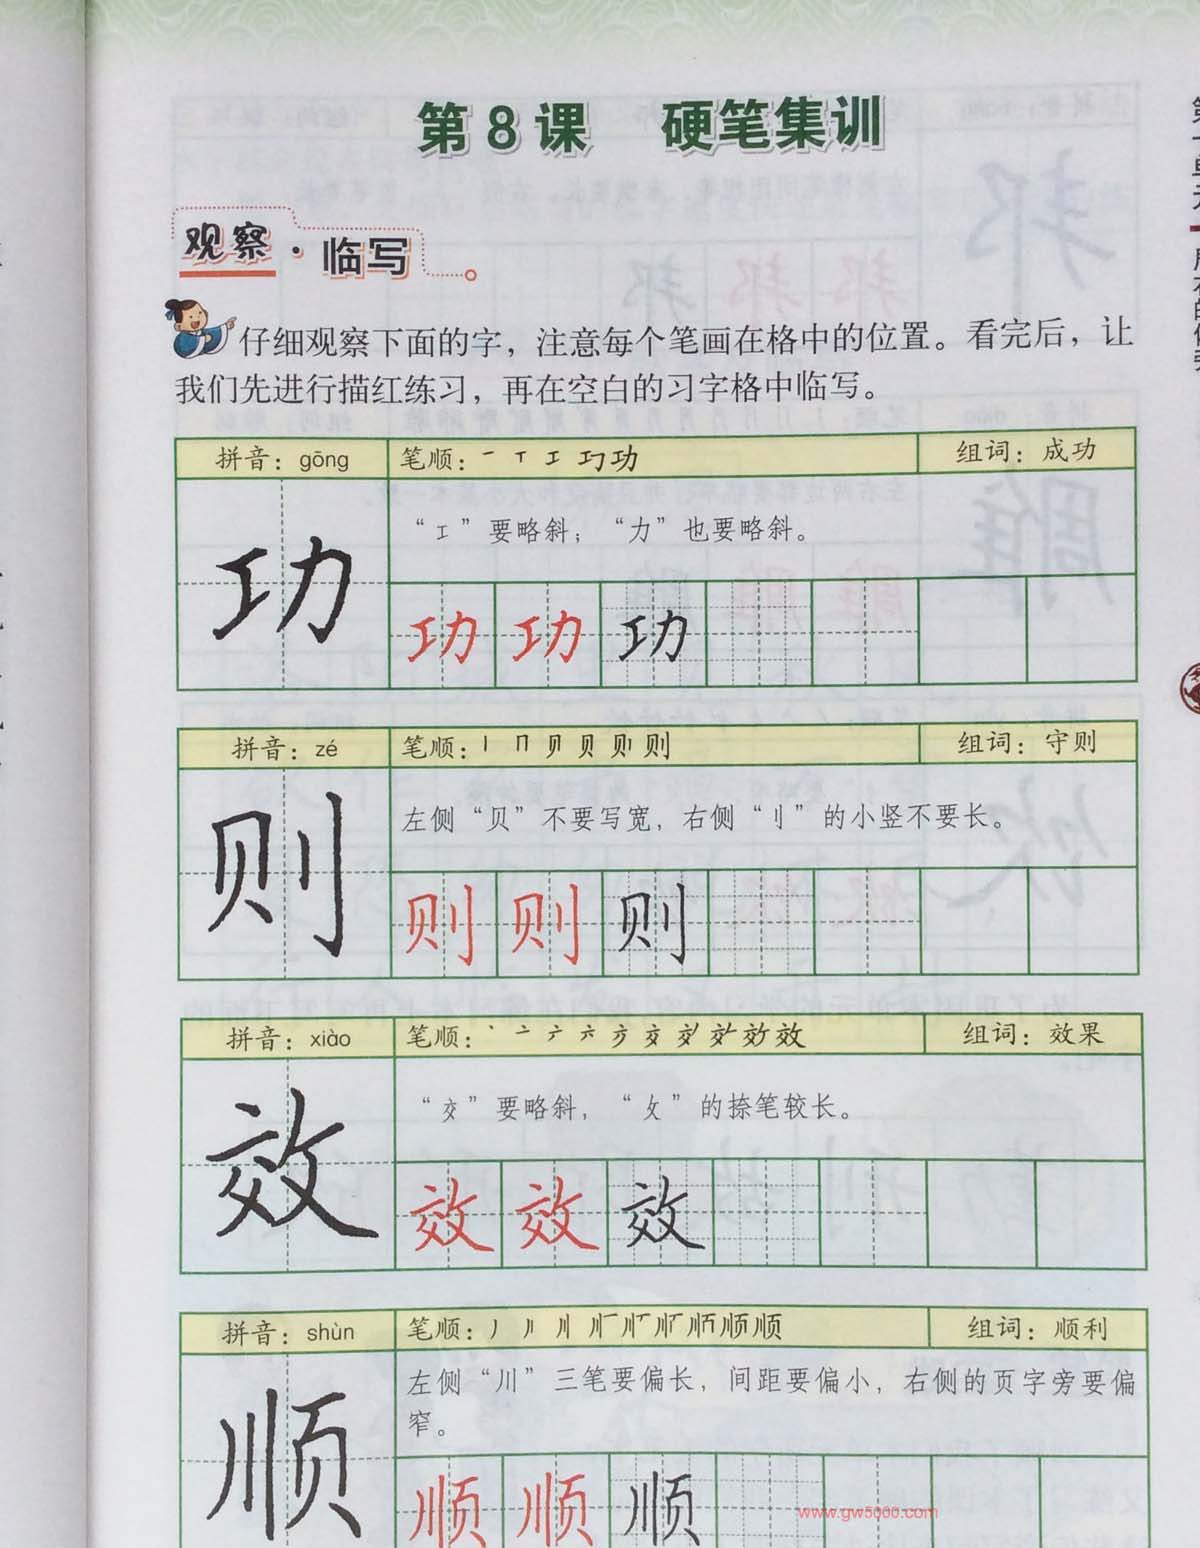 第8课 硬笔集训
观察·临写
仔细观察下面的字，注意每个笔画在格中的位置。看完后，让
我们先进行描红练习，再在空白的习字格中临写。
拼音：gōng 笔顺：一 丅 工 功 组词：成功
功
“工”要略斜；“力”也要略斜。
功 功 功
拼音：zé 笔顺：丨 冂 贝 贝 则 组词：守则
则
左侧“贝”不要写宽，右侧“刂”的小竖不要长。
则 则 则
拼音：xiào 笔顺：丶 亠 六 交 效 效 组词：效果
效
“交”要略斜，“攵”的捺笔较长。
效 效 效
拼音：shùn 笔顺：丿 川 顺 顺 组词：顺利
顺
左侧“川”三笔要偏长，间距要偏小，右侧的页字旁要偏
窄。
顺 顺 顺
www.gw5000.com